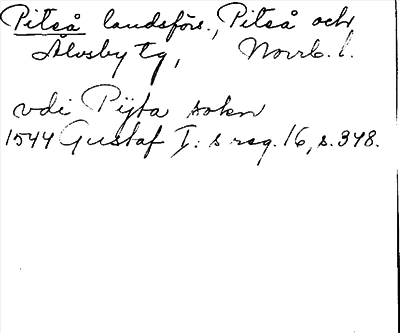 Piteå landsförs., Piteå och
Älvsby tg, Norrb. l.
vdi Pijta sokn
1544 Gustaf I: s reg. 16, s. 348.